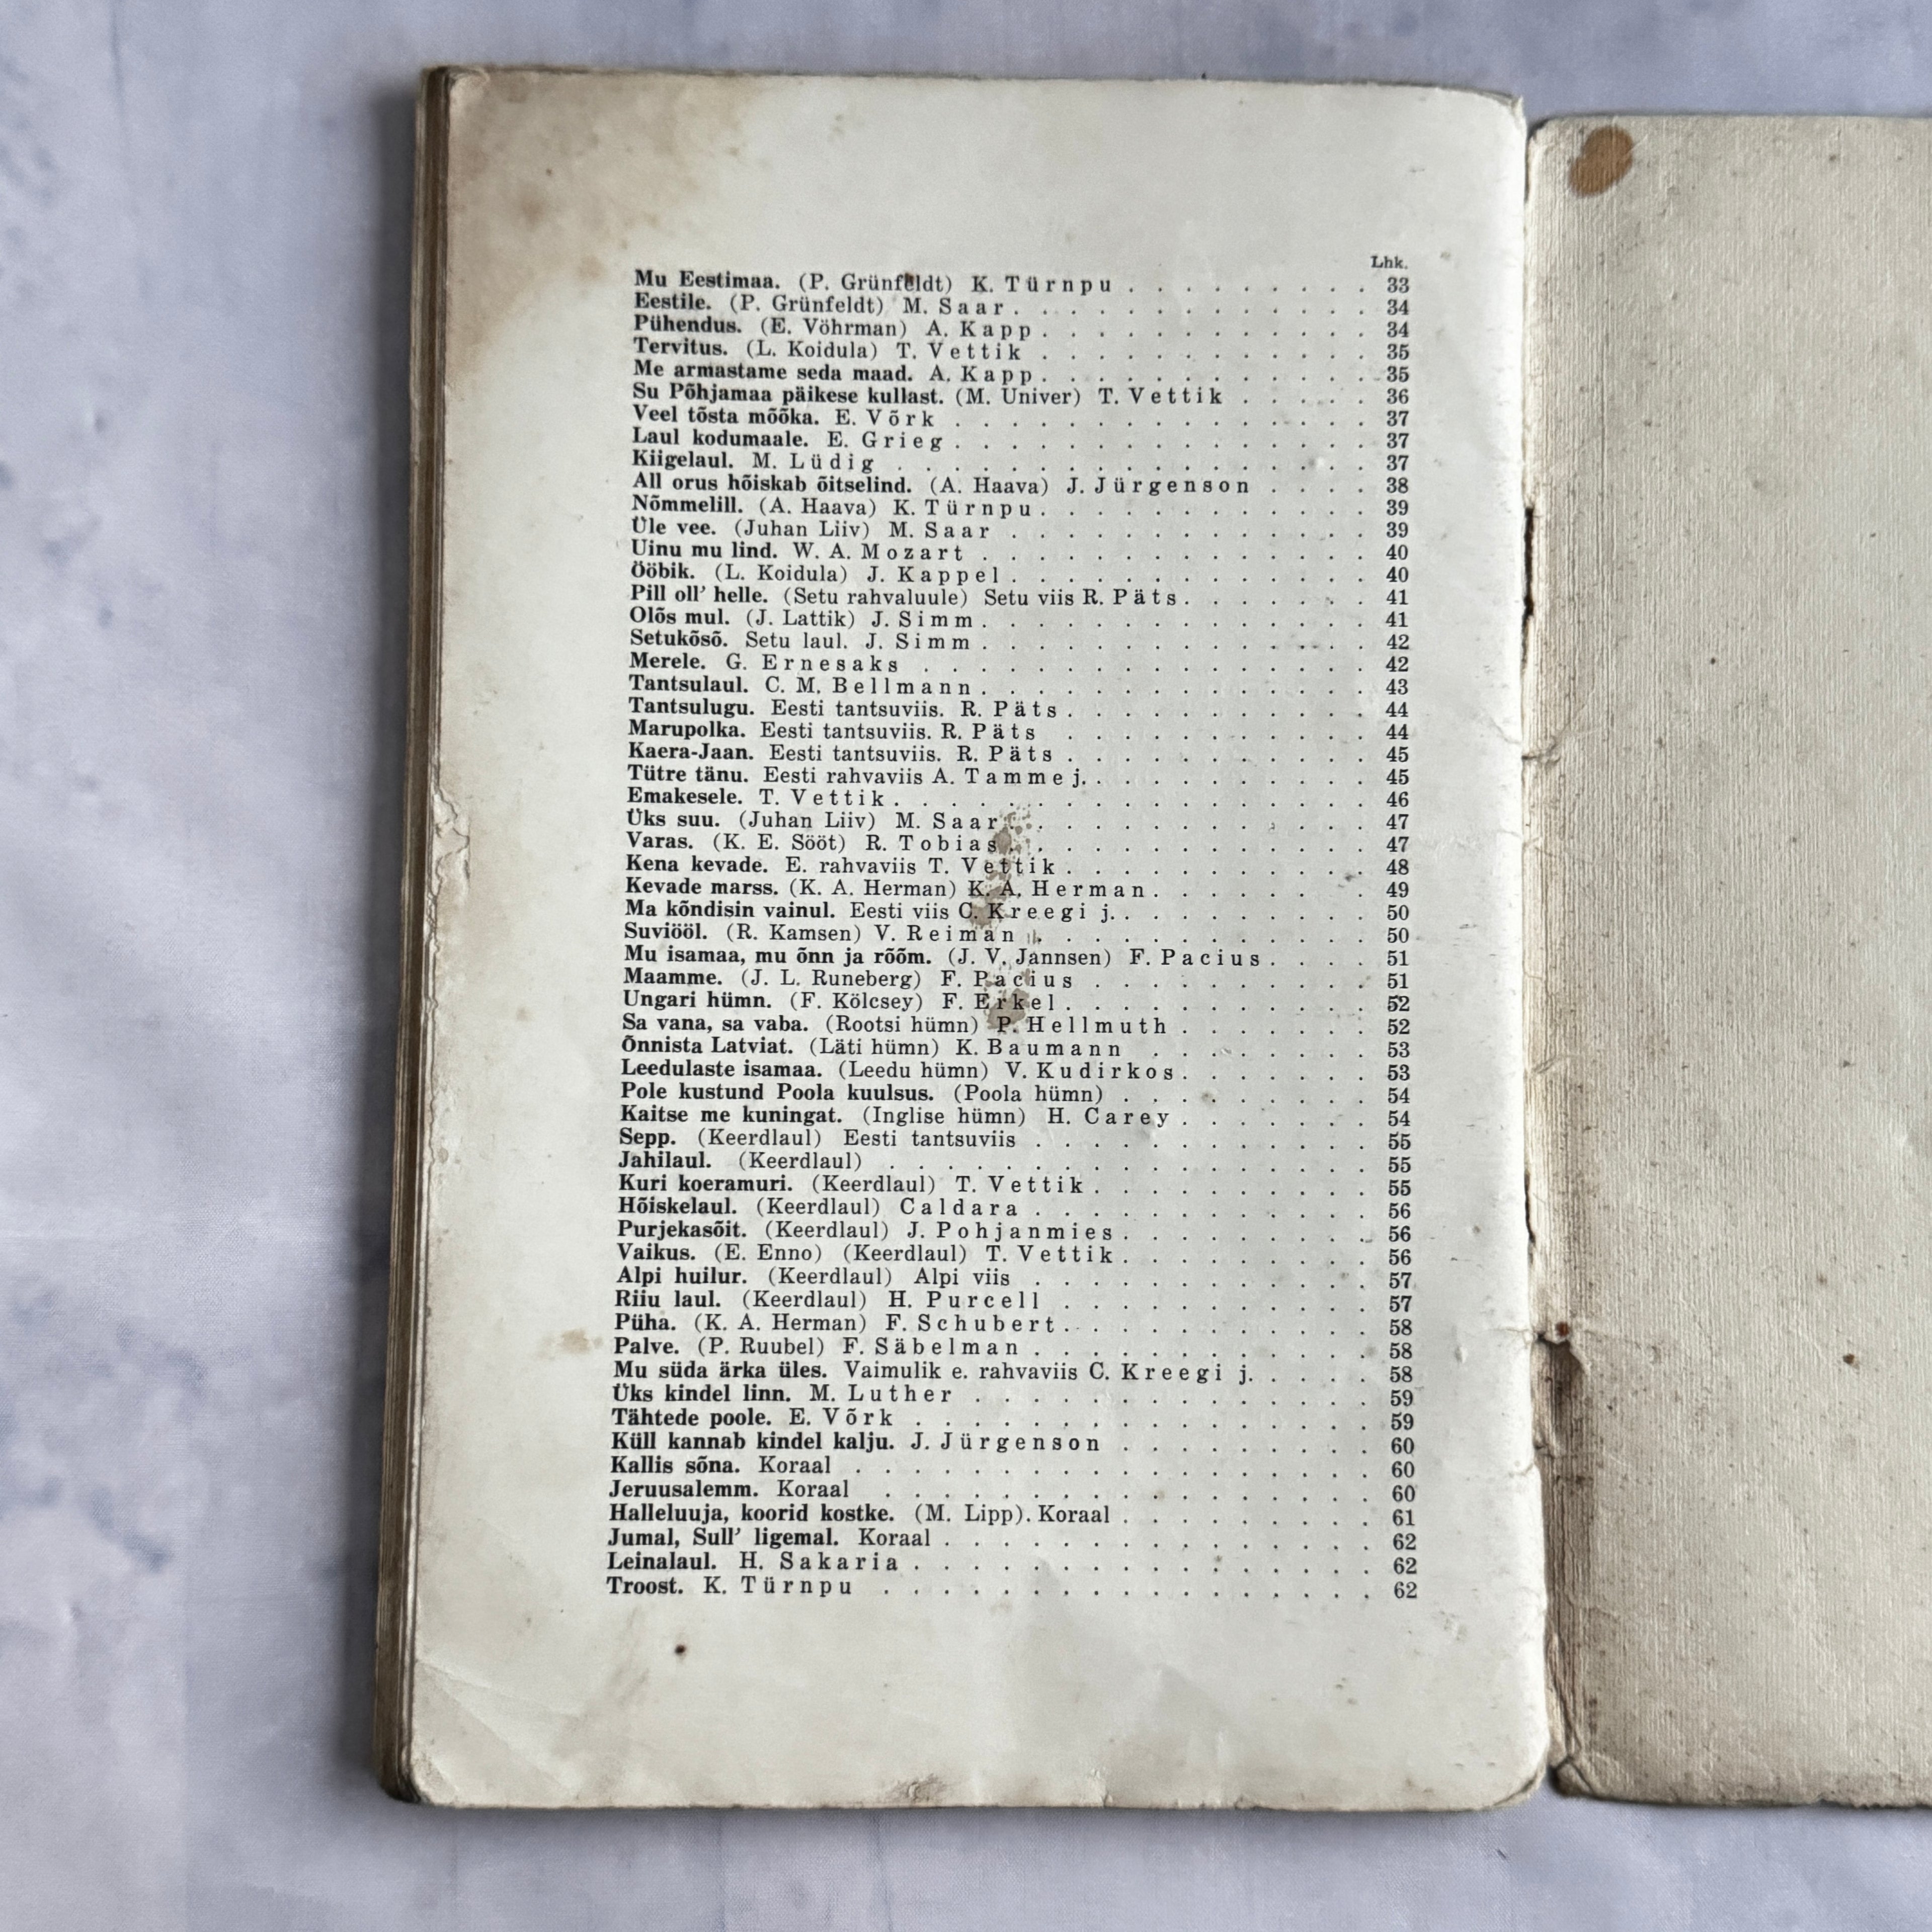 Lhk.
Mu Eestimaa. (P. Grünfeldt) K. Türnpu . . . . . . . . . . 33
Eestile. (P. Grünfeldt) M. Saar . . . . . . . . . . . . . 34
Pühendus. (E. Vöhrman) A. Kapp . . . . . . . . . . . . 34
Tervitus. (L. Koidula) T. Vettik . . . . . . . . . . . . 35
Me armastame seda maad. A. Kapp . . . . . . . . . . . . 35
Su Põhjamaa päikese kullast. (M. Univer) T. Vettik . . . . . 36
Veel tõsta mõõka. E. Võrk . . . . . . . . . . . . . . . 37
Laul kodumaale. E. Grieg . . . . . . . . . . . . . . . 37
Kiigelaul. M. Lüdig . . . . . . . . . . . . . . . . . 37
All orus hõiskab õitselind. (A. Haava) J. Jürgenson . . . . 38
Nõmmelill. (A. Haava) K. Türnpu . . . . . . . . . . . . 39
Üle vee. (Juhan Liiv) M. Saar . . . . . . . . . . . . . 39
Uinu mu lind. W. A. Mozart . . . . . . . . . . . . . . 40
Ööbik. (L. Koidula) J. Kappel . . . . . . . . . . . . . 40
Pill oll' helle. (Setu rahvaluule) Setu viis R. Päts . . . . . . . 41
Olõs mul. (J. Lattik) J. Simm . . . . . . . . . . . . . . 41
Setukõsõ. Setu laul. J. Simm . . . . . . . . . . . . . . 42
Merele. G. Ernesaks . . . . . . . . . . . . . . . . 42
Tantsulaul. C. M. Bellmann . . . . . . . . . . . . . . 43
Tantsulugu. Eesti tantsuviis. R. Päts . . . . . . . . . . . 44
Marupolka. Eesti tantsuviis. R. Päts . . . . . . . . . . . 44
Kaera-Jaan. Eesti tantsuviis. R. Päts . . . . . . . . . . . 45
Tütre tänu. Eesti rahvaviis A. Tamme j. . . . . . . . . . . 45
Emakesele. T. Vettik . . . . . . . . . . . . . . . . . 46
Üks suu. (Juhan Liiv) M. Saar . . . . . . . . . . . . . 47
Varas. (K. E. Sööt) R. Tobias . . . . . . . . . . . . . 47
Kena kevade. E. rahvaviis T. Vettik . . . . . . . . . . . 48
Kevade marss. (K. A. Herman) K. A. Herman . . . . . . . . 49
Ma kõndisin vainul. Eesti viis C. Kreegi j. . . . . . . . . . 50
Suviööl. (R. Kamsen) V. Reiman . . . . . . . . . . . . 50
Mu isamaa, mu õnn ja rõõm. (J. V. Jannsen) F. Pacius . . . . 51
Maamme. (J. L. Runeberg) F. Pacius . . . . . . . . . . 51
Ungari hümn. (F. Kölcsey) F. Erkel . . . . . . . . . . . 52
Sa vana, sa vaba. (Rootsi hümn) P. Hellmuth . . . . . . . 52
Õnnista Latviat. (Läti hümn) K. Baumann . . . . . . . . 53
Leedulaste isamaa. (Leedu hümn) V. Kudirkos . . . . . . . 53
Pole kustund Poola kuulsus. (Poola hümn) . . . . . . . . . 54
Kaitse me kuningat. (Inglise hümn) H. Carey . . . . . . . 54
Sepp. (Keerdlaul) Eesti tantsuviis . . . . . . . . . . . . 55
Jahilaul. (Keerdlaul) . . . . . . . . . . . . . . . . . 55
Kuri koeramuri. (Keerdlaul) T. Vettik . . . . . . . . . . 55
Hõiskelaul. (Keerdlaul) Caldara . . . . . . . . . . . . 56
Purjekasõit. (Keerdlaul) J. Pohjanmies . . . . . . . . . 56
Vaikus. (E. Enno) (Keerdlaul) T. Vettik . . . . . . . . . 56
Alpi huilur. (Keerdlaul) Alpi viis . . . . . . . . . . . . 57
Riiu laul. (Keerdlaul) H. Purcell . . . . . . . . . . . 57
Püha. (K. A. Herman) F. Schubert . . . . . . . . . . . 58
Palve. (P. Ruubel) F. Säbelman . . . . . . . . . . . . 58
Mu süda ärka üles. Vaimulik e. rahvaviis C. Kreegi j. . . . . 58
Üks kindel linn. M. Luther . . . . . . . . . . . . . . 59
Tähtede poole. E. Võrk . . . . . . . . . . . . . . . . 59
Küll kannab kindel kalju. J. Jürgenson . . . . . . . . . 60
Kallis sõna. Koraal . . . . . . . . . . . . . . . . . . 60
Jeruusalemm. Koraal . . . . . . . . . . . . . . . . . 60
Halleluuja, koorid kostke. (M. Lipp). Koraal . . . . . . . . . 61
Jumal, Sull' ligemal. Koraal . . . . . . . . . . . . . . . 62
Leinalaul. H. Sakaria . . . . . . . . . . . . . . . . 62
Troost. K. Türnpu . . . . . . . . . . . . . . . . . 62